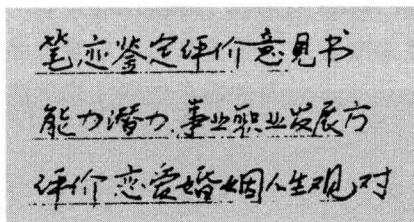 笔恋鉴定评价意见书
能力潜力、事业职业发展方
评价恋爱婚姻人生观对